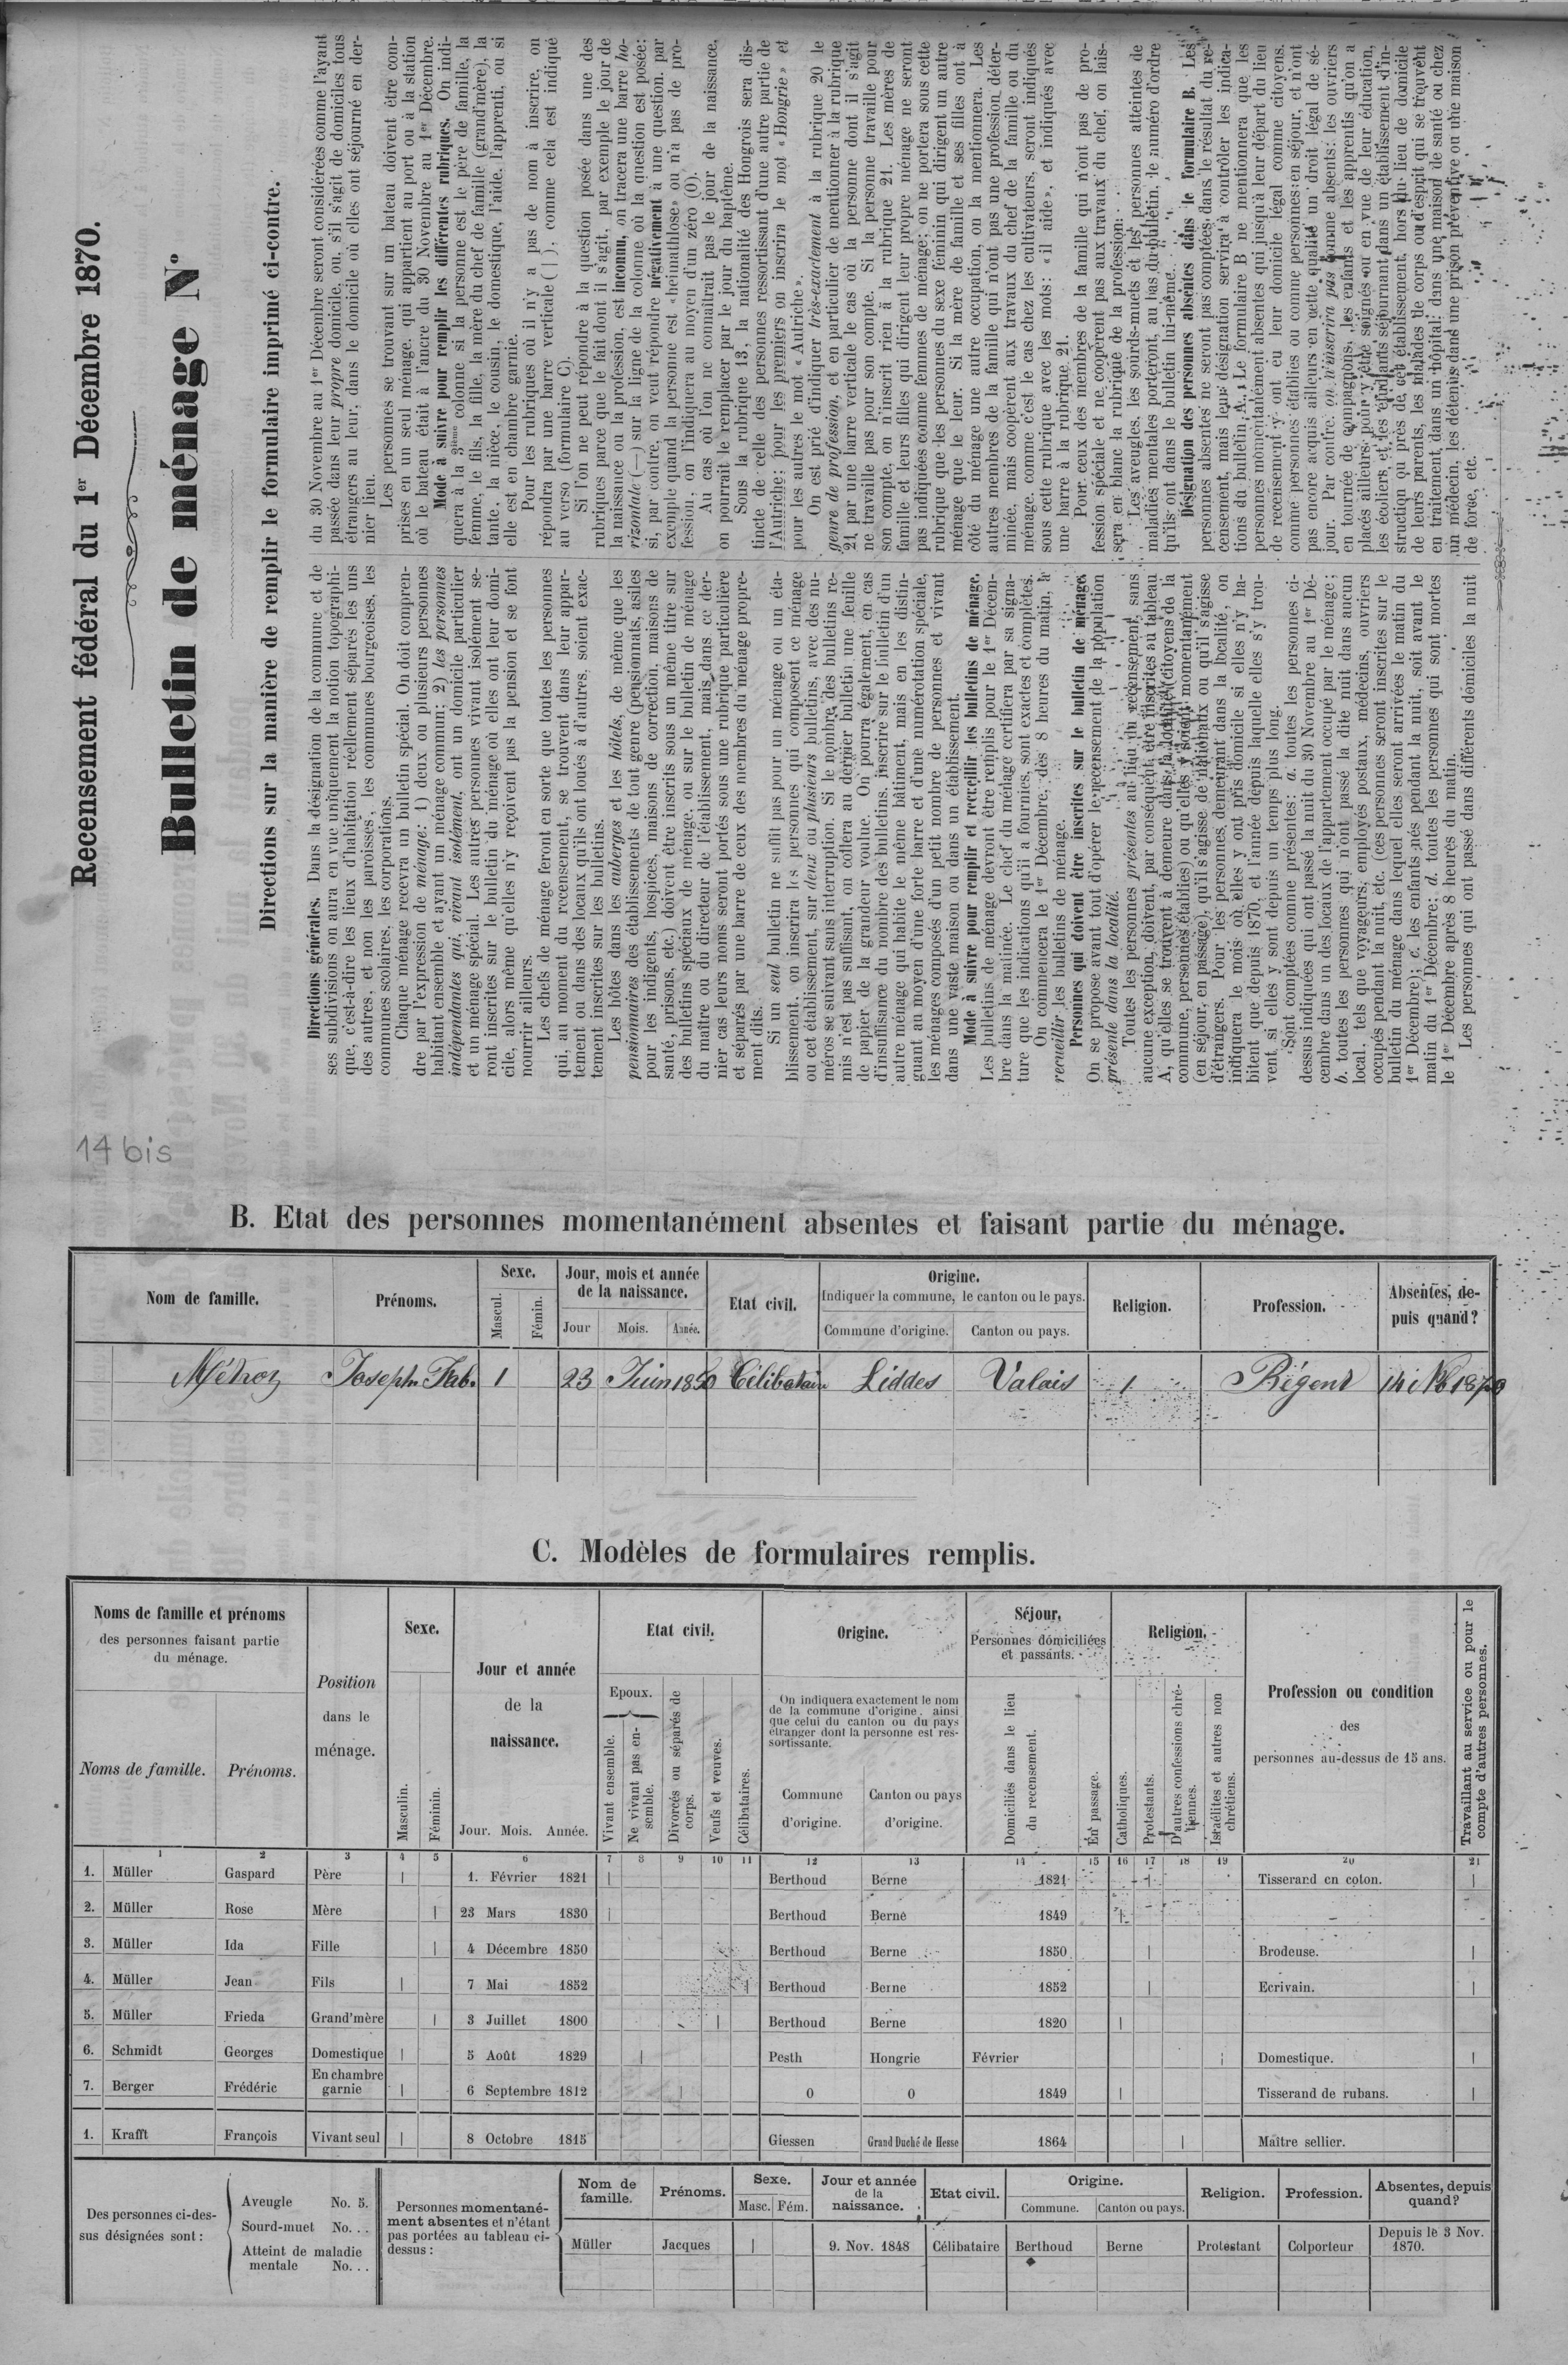 Recensement fédéral du 1er Décembre 1870.
Bulletin de ménage No
Directions sur la manière de remplir le formulaire imprimé ci-contre.
Directions générales. Dans la désignation de la commune et de
ses subdivisions on aura en vue uniquement la notion topographi-
que, c'est-à-dire les lieux d'habitation réellement séparés les uns
des autres, et non les paroisses, les communes bourgeoises, les
communes scolaires, les corporations.
Chaque ménage recevra un bulletin spécial. On doit compren-
dre par l'expression de ménage: 1) deux ou plusieurs personnes
habitant ensemble et ayant un ménage commun; 2) les personnes
indépendantes qui, vivant isolément, ont un domicile particulier
et un ménage spécial. Les autres personnes vivant isolément se-
ront inscrites sur le bulletin du ménage où elles ont leur domi-
cile, alors même qu'elles n'y reçoivent pas la pension et se font
nourrir ailleurs.
Les chefs de ménage feront en sorte que toutes les personnes
qui, au moment du recensement, se trouvent dans leur appar-
tement ou dans des locaux qu'ils ont loués à d'autres, soient exac-
tement inscrites sur les bulletins.
Les hôtes dans les auberges et les hôtels, de même que les
pensionnaires des établissements de tout genre (pensionnats, asiles
pour les indigents, hospices, maisons de correction, maisons de
santé, prisons, etc.) doivent être inscrits sous un même titre sur
des bulletins spéciaux de ménage, ou sur le bulletin de ménage
du maître ou du directeur de l'établissement, mais dans ce der-
nier cas leurs noms seront portés sous une rubrique particulière
et séparés par une barre de ceux des membres du ménage propre-
ment dits.
Si un seul bulletin ne suffit pas pour un ménage ou un éta-
blissement, on inscrira les personnes qui composent ce ménage
ou cet établissement, sur deux ou plusieurs bulletins, avec des nu-
méros se suivant sans interruption. Si le nombre des bulletins re-
mis n'est pas suffisant, on collera au dernier bulletin une feuille
de papier de la grandeur voulue. On pourra également, en cas
d'insuffisance du nombre des bulletins, inscrire sur le bulletin d'un
autre ménage qui habite le même bâtiment, mais en les distin-
guant au moyen d'une forte barre et d'une numérotation spéciale,
les ménages composés d'un petit nombre de personnes et vivant
dans une vaste maison ou dans un établissement.
Mode à suivre pour remplir et recueillir les bulletins de ménage.
Les bulletins de ménage devront être remplis pour le 1er Décem-
bre dans la matinée. Le chef du ménage certifiera par sa signa-
ture que les indications qu'il a fournies, sont exactes et complètes.
On commencera le 1er Décembre, dès 8 heures du matin, à
recueillir les bulletins de ménage.
Personnes qui doivent être inscrites sur le bulletin de ménage.
On se propose avant tout d'opérer le recensement de la population
présente dans la localité.
Toutes les personnes présentes au lieu du recensement, sans
aucune exception, doivent, par conséquent, être inscrites au tableau
A, qu'elles se trouvent à demeure dans la localité (citoyens de la
commune, personnes établies) ou qu'elles y soient momentanément
(en séjour, en passage), qu'il s'agisse de nationaux ou qu'il s'agisse
d'étrangers. Pour les personnes demeurant dans la localité, on
indiquera le mois où elles y ont pris domicile si elles n'y ha-
bitent que depuis 1870, et l'année depuis laquelle elles s'y trou-
vent, si elles y sont depuis un temps plus long.
Sont comptées comme présentes: a. toutes les personnes ci-
dessus indiquées qui ont passé la nuit du 30 Novembre au 1er Dé-
cembre dans un des locaux de l'appartement occupé par le ménage;
b. toutes les personnes qui n'ont passé la dite nuit dans aucun
local, tels que voyageurs, employés postaux, médecins, ouvriers
occupés pendant la nuit, etc. (ces personnes seront inscrites sur le
bulletin du ménage dans lequel elles seront arrivées le matin du
1er Décembre); c. les enfants nés pendant la nuit, soit avant le
matin du 1er Décembre; d. toutes les personnes qui sont mortes
le 1er Décembre après 8 heures du matin.
Les personnes qui ont passé dans différents domiciles la nuit
du 30 Novembre au 1er Décembre seront considérées comme l'ayant
passée dans leur propre domicile, ou, s'il s'agit de domiciles tous
étrangers au leur, dans le domicile où elles ont séjourné en der-
nier lieu.
Les personnes se trouvant sur un bateau doivent être com-
prises en un seul ménage, qui appartient au port ou à la station
où le bateau était à l'ancre du 30 Novembre au 1er Décembre.
Mode à suivre pour remplir les différentes rubriques. On indi-
quera à la 3ième colonne si la personne est le père de famille, la
femme, le fils, la fille, la mère du chef de famille (grand'mère), la
tante, la nièce, le cousin, le domestique, l'aide, l'apprenti, ou si
elle est en chambre garnie.
Pour les rubriques où il n'y a pas de nom à inscrire, on
répondra par une barre verticale (|), comme cela est indiqué
au verso (formulaire C).
Si l'on ne peut répondre à la question posée dans une des
rubriques parce que le fait dont il s'agit, par exemple le jour de
la naissance ou la profession, est inconnu, on tracera une barre ho-
rizontale (—) sur la ligne de la colonne où la question est posée;
si, par contre, on veut répondre négativement à une question, par
exemple quand la personne est «heimathlose» ou n'a pas de pro-
fession, on l'indiquera au moyen d'un zéro (0).
Au cas où l'on ne connaîtrait pas le jour de la naissance,
on pourrait le remplacer par le jour du baptême.
Sous la rubrique 13, la nationalité des Hongrois sera dis-
tincte de celle des personnes ressortissant d'une autre partie de
l'Autriche; pour les premiers on inscrira le mot «Hongrie» et
pour les autres le mot «Autriche».
On est prié d'indiquer très-exactement à la rubrique 20 le
genre de profession, et en particulier de mentionner à la rubrique
21 par une barre verticale le cas où la personne dont il s'agit
ne travaille pas pour son compte. Si la personne travaille pour
son compte, on n'inscrit rien à la rubrique 21. Les mères de
famille et leurs filles qui dirigent leur propre ménage ne seront
pas indiquées comme femmes de ménage; on ne portera sous cette
rubrique que les personnes du sexe féminin qui dirigent un autre
ménage que le leur. Si la mère de famille et ses filles ont à
côté du ménage une autre occupation, on la mentionnera. Les
autres membres de la famille qui n'ont pas une profession déter-
minée, mais coopèrent aux travaux du chef de la famille ou du
ménage, comme c'est le cas chez les cultivateurs, seront indiqués
sous cette rubrique avec les mots: «il aide», et indiqués avec
une barre à la rubrique 21.
Pour ceux des membres de la famille qui n'ont pas de pro-
fession spéciale et ne coopèrent pas aux travaux du chef, on lais-
sera en blanc la rubrique de la profession.
Les aveugles, les sourds-muets et les personnes atteintes de
maladies mentales porteront, au bas du bulletin, le numéro d'ordre
qu'ils ont dans le bulletin lui-même.
Désignation des personnes absentes dans le formulaire B. Les
personnes absentes ne seront pas comptées dans le résultat du re-
censement, mais leur désignation servira à contrôler les indica-
tions du bulletin A. Le formulaire B ne mentionnera que les
personnes momentanément absentes qui jusqu'à leur départ du lieu
de recensement y ont eu leur domicile légal comme citoyens,
comme personnes établies ou comme personnes en séjour, et n'ont
pas encore acquis ailleurs en cette qualité un droit légal de sé-
jour. Par contre, on n'inscrira pas comme absents: les ouvriers
en tournée de compagnons, les enfants et les apprentis qu'on a
placés ailleurs pour y être soignés ou en vue de leur éducation,
les écoliers et les étudiants séjournant dans un établissement d'in-
struction ou près de cet établissement, hors du lieu de domicile
de leurs parents, les malades de corps ou d'esprit qui se trouvent
en traitement dans un hôpital; dans une maison de santé ou chez
un médecin, les détenus dans une prison préventive ou une maison
de force, etc.
14 bis
B. Etat des personnes momentanément absentes et faisant partie du ménage.
Nom de famille. Prénoms. Sexe. Mascul. Fémin. Jour, mois et année de la naissance. Jour Mois. Année. Etat civil. Origine. Indiquer la commune, le canton ou le pays. Commune d'origine. Canton ou pays. Religion. Profession. Absentes, de-puis quand?
Métroz Joseph Fab. 1 23 Juin 1850 Célibataire Liddes Valais 1 Régent 1870
C. Modèles de formulaires remplis.
Noms de famille et prénoms des personnes faisant partie du ménage. Noms de famille. Prénoms.
Position dans le ménage.
Sexe. Masculin. Féminin.
Jour et année de la naissance. Jour. Mois. Année.
Etat civil. Epoux. Vivant ensemble. Ne vivant pas en-semble. Divorcés ou séparés de corps. Veufs et veuves. Célibataires.
Origine. On indiquera exactement le nom de la commune d'origine, ainsi que celui du canton ou du pays étranger dont la personne est res-sortissante. Commune d'origine. Canton ou pays d'origine.
Séjour. Personnes domiciliées et passants. Domiciliés dans le lieu du recensement. En passage.
Religion. Catholiques. Protestants. D'autres confessions chré-tiennes. Israélites et autres non chrétiens.
Profession ou condition des personnes au-dessus de 15 ans.
Travaillant au service ou pour le compte d'autres personnes.
1 2 3 4 5 6 7 8 9 10 11 12 13 14 15 16 17 18 19 20 21
1. Müller Gaspard Père | 1. Février 1821 | Berthoud Berne 1821 | Tisserand en coton. |
2. Müller Rose Mère | 23 Mars 1830 | Berthoud Berne 1849 |
3. Müller Ida Fille | 4 Décembre 1850 Berthoud Berne 1850 | Brodeuse. |
4. Müller Jean Fils | 7 Mai 1852 | Berthoud Berne 1852 | Ecrivain. |
5. Müller Frieda Grand'mère | 3 Juillet 1800 | Berthoud Berne 1820 |
6. Schmidt Georges Domestique | 5 Août 1829 | Pesth Hongrie Février | Domestique. |
7. Berger Frédéric En chambre garnie | 6 Septembre 1812 | 0 0 1849 | Tisserand de rubans. |
1. Krafft François Vivant seul | 8 Octobre 1815 Giessen Grand Duché de Hesse 1864 | Maître sellier.
Des personnes ci-des-sus désignées sont:
Aveugle No. 5.
Sourd-muet No. . .
Atteint de maladie mentale No. . .
Personnes momentané-ment absentes et n'étant pas portées au tableau ci-dessus:
Nom de famille. Prénoms. Sexe. Masc. Fém. Jour et année de la naissance. Etat civil. Origine. Commune. Canton ou pays. Religion. Profession. Absentes, depuis quand?
Müller Jacques | 9. Nov. 1848 Célibataire Berthoud Berne Protestant Colporteur Depuis le 3 Nov. 1870.